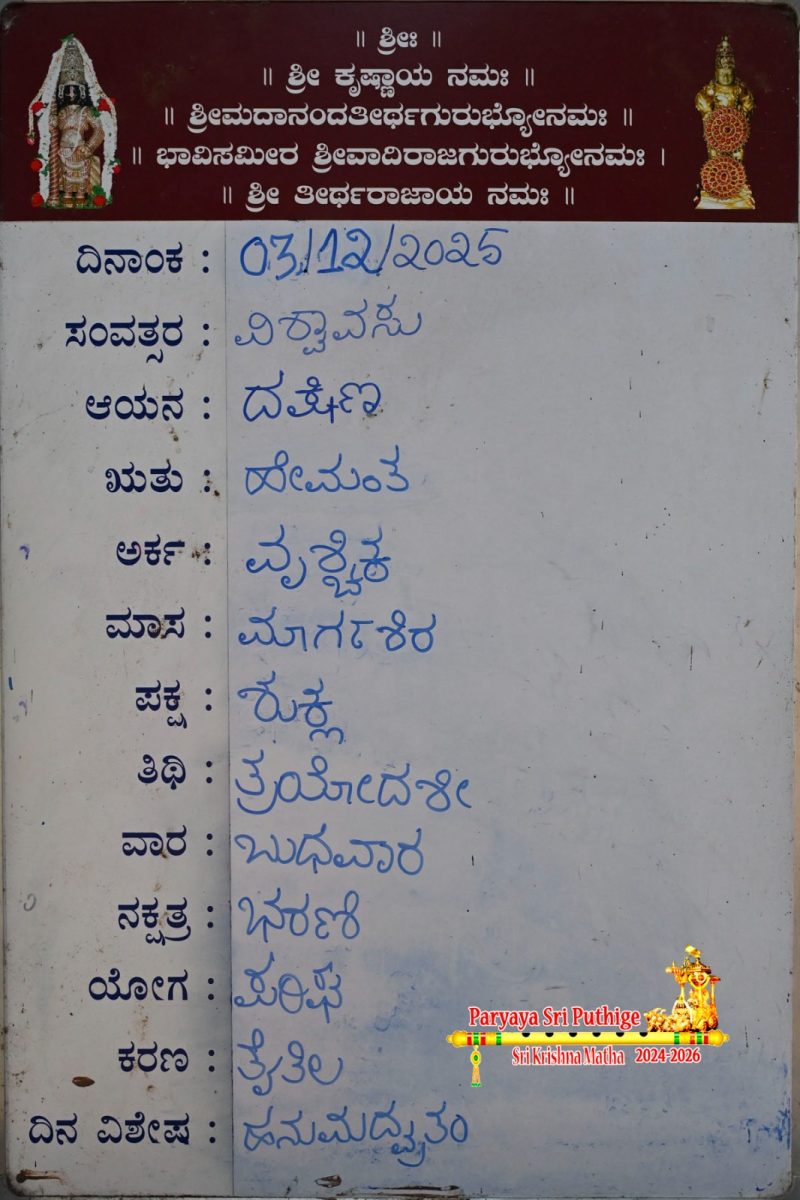 ॥ ಶ್ರೀಃ ॥
॥ ಶ್ರೀ ಕೃಷ್ಣಾಯ ನಮಃ ॥
॥ ಶ್ರೀಮದಾನಂದತೀರ್ಥಗುರುಭ್ಯೋನಮಃ ॥
॥ ಭಾವಿಸಮೀರ ಶ್ರೀವಾದಿರಾಜಗುರುಭ್ಯೋನಮಃ ।
॥ ಶ್ರೀ ತೀರ್ಥರಾಜಾಯ ನಮಃ ॥
ದಿನಾಂಕ : 03/12/2025
ಸಂವತ್ಸರ : ವಿಶ್ವಾವಸು
ಆಯನ : ದಕ್ಷಿಣ
ಋತು : ಹೇಮಂತ
ಅರ್ಕ : ವೃಶ್ಚಿಕ
ಮಾಸ : ಮಾರ್ಗಶಿರ
ಪಕ್ಷ : ಶುಕ್ಲ
ತಿಥಿ : ತ್ರಯೋದಶೀ
ವಾರ : ಬುಧವಾರ
ನಕ್ಷತ್ರ : ಭರಣಿ
ಯೋಗ : ಪರಿಘ
ಕರಣ : ತೈತಿಲ
ದಿನ ವಿಶೇಷ : ಹನುಮದ್ವ್ರತಂ
Paryaya Sri Puthige
Sri Krishna Matha 2024-2026